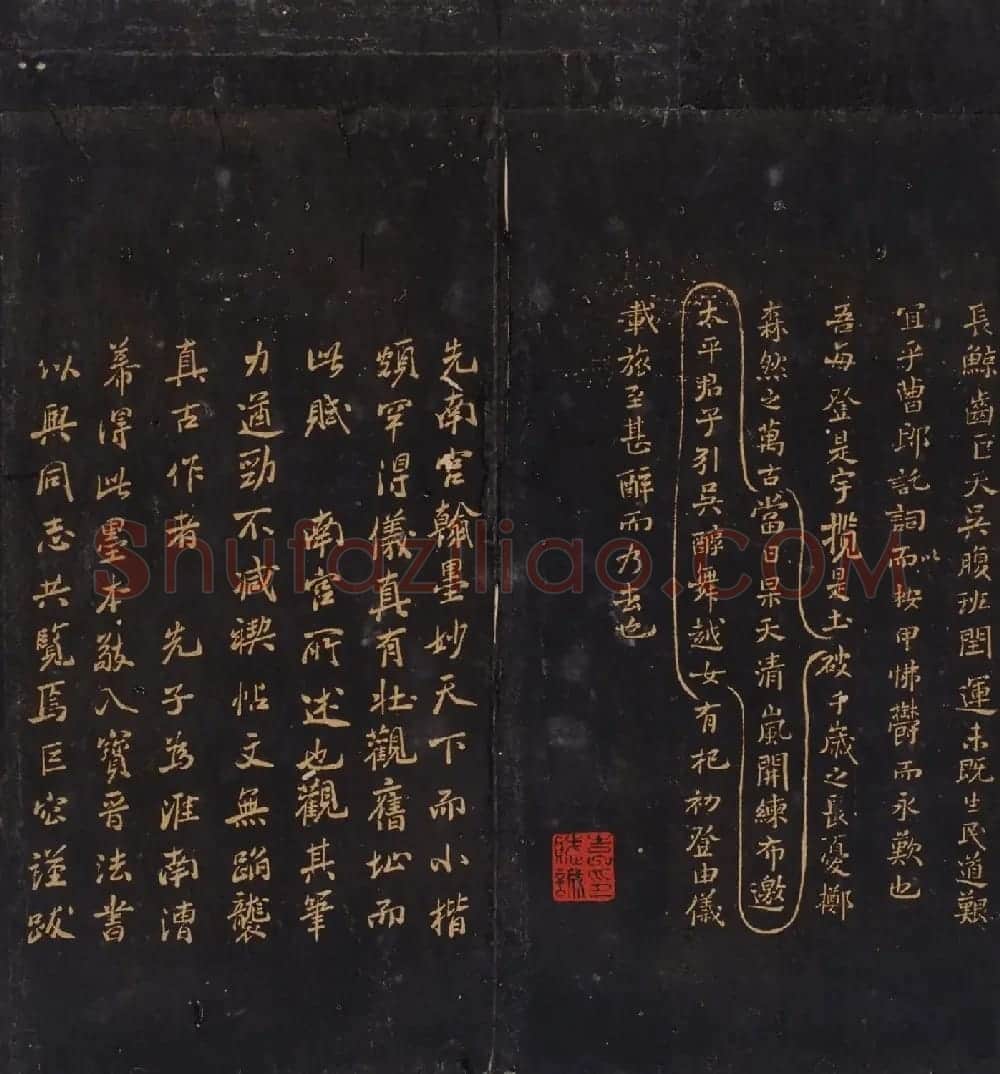 長鯨齒巨天吳腹班閏運未既生民道艱
宜乎曹郎託詞而按甲怫鬱而永歎也
以
吾每登是宇攬是土破千歲之長憂擲
森然之萬古當其杲天清嵐開練布邀
太平君子引吳醇舞越女有杞初登由儀
載旅至甚醉而乃去也
先南宮翰墨妙天下而小楷
頗罕得儀真有壯觀舊址而
此賦 南宮所述也觀其筆
力遒勁不减禊帖文無蹈襲
真古作者 先子為淮南漕
幕得此墨本敬入寶晉法書
以與同志共覽焉巨宏謹跋
Shufaziliao.COM